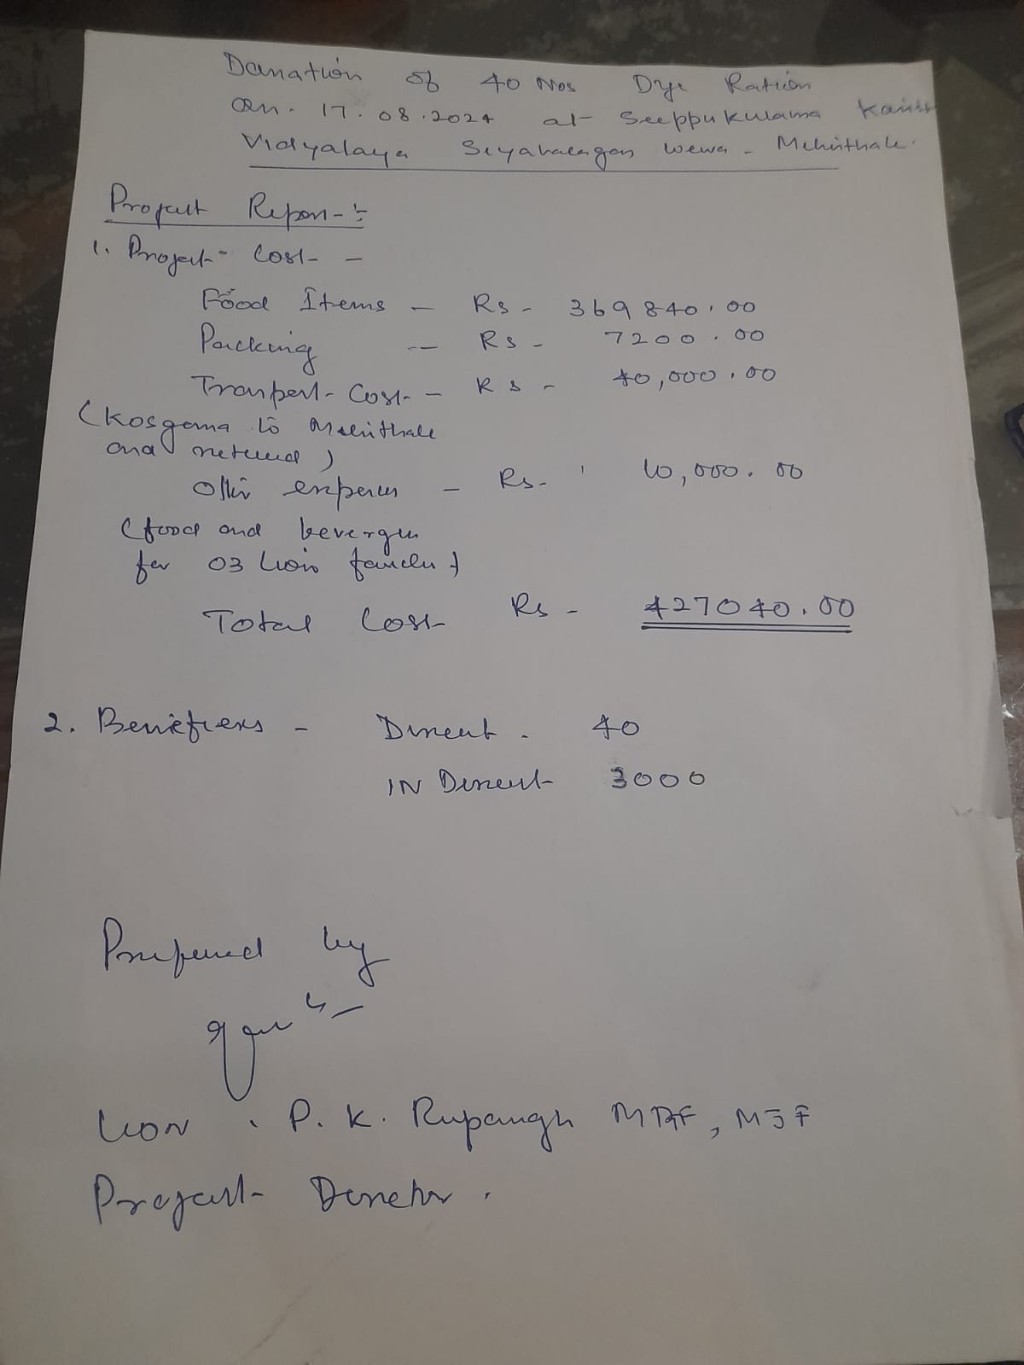 Donation of 40 Nos Dry Ration
on. 17.08.2024 at Seeppukulama
Vidyalaya wewa - Mehinthale.
Project Report :-
1. Project Cost -
Food Items - Rs - 369840.00
Packing - Rs - 7200.00
Transport Cost - Rs - 40,000.00
(Kosgama to Mehinthale
and returned)
Other expenses - Rs - 10,000.00
(food and beverages
for 03 Lion families)
Total Cost Rs - 427040.00
2. - Direct - 40
IN Direct 3000
Prepared by
Lion . P. K. MJF
Project Director .